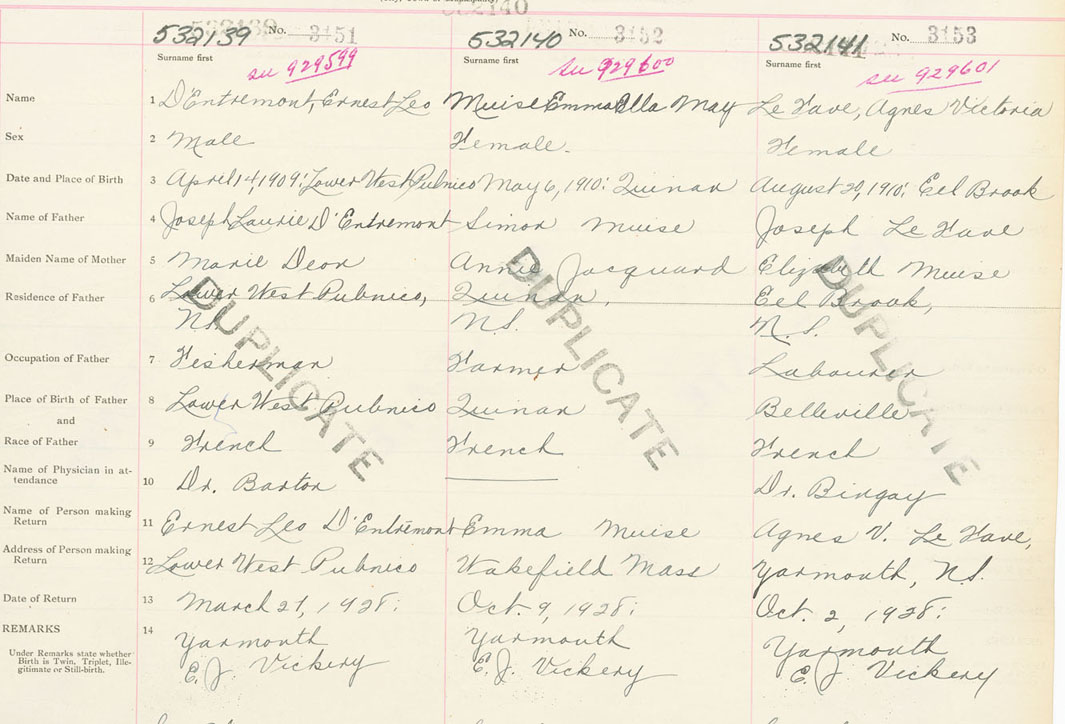 532140
532139 No. 3151 532140 No. 3152 532141 No. 3153
Surname first Surname first Surname first
su 929599 su 929600 su 929601
Name 1 D'Entremont, Ernest Leo Muise Emma Ella May Le Fave, Agnes Victoria
Sex 2 Male Female. Female
Date and Place of Birth 3 April 14, 1909: Lower West Pubnico May 6, 1910: Quinan August 20, 1910: Eel Brook
Name of Father 4 Joseph Laurie D'Entremont Simon Muise Joseph Le Fave
Maiden Name of Mother 5 Marie Deon Annie Jacquard Elizabeth Muise
Residence of Father 6 Lower West Pubnico, Quinan, Eel Brook,
NS. N.S. N.S.
DUPLICATE DUPLICATE DUPLICATE
Occupation of Father 7 Fisherman Farmer Labourer
Place of Birth of Father 8 Lower West Pubnico Quinan Belleville
and
Race of Father 9 French French French
Name of Physician in at-
tendance 10 Dr. Barton Dr. Bingay
Name of Person making
Return 11 Ernest Leo D'Entremont Emma Muise Agnes V. Le Fave,
Address of Person making
Return 12 Lower West Pubnico Wakefield Mass Yarmouth, N.S.
Date of Return 13 March 21, 1928: Oct. 9, 1928: Oct. 2, 1928:
REMARKS 14 Yarmouth Yarmouth Yarmouth
Under Remarks state whether
Birth is Twin, Triplet, Ille-
gitimate or Still-birth.
E. J. Vickery E. J. Vickery E. J. Vickery